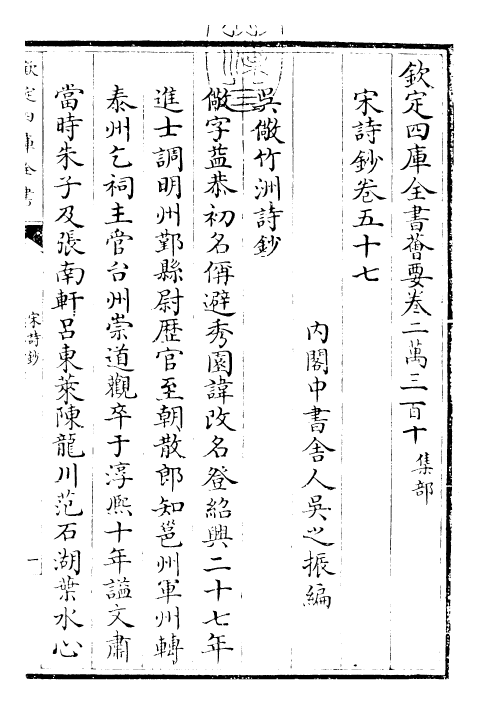 欽定四庫全書薈要卷二萬三百十 集部
宋詩鈔卷五十七
內閣中書舍人吳之振編
吳儆竹洲詩鈔
儆字益恭初名偁避秀園諱改名登紹興二十七年
進士調明州鄞縣尉歷官至朝散郎知邕州軍州轉
泰州乞祠主管台州崇道觀卒于淳熙十年諡文肅
當時朱子及張南軒呂東萊陳龍川范石湖葉水心
欽定四庫全書
宋詩鈔
一